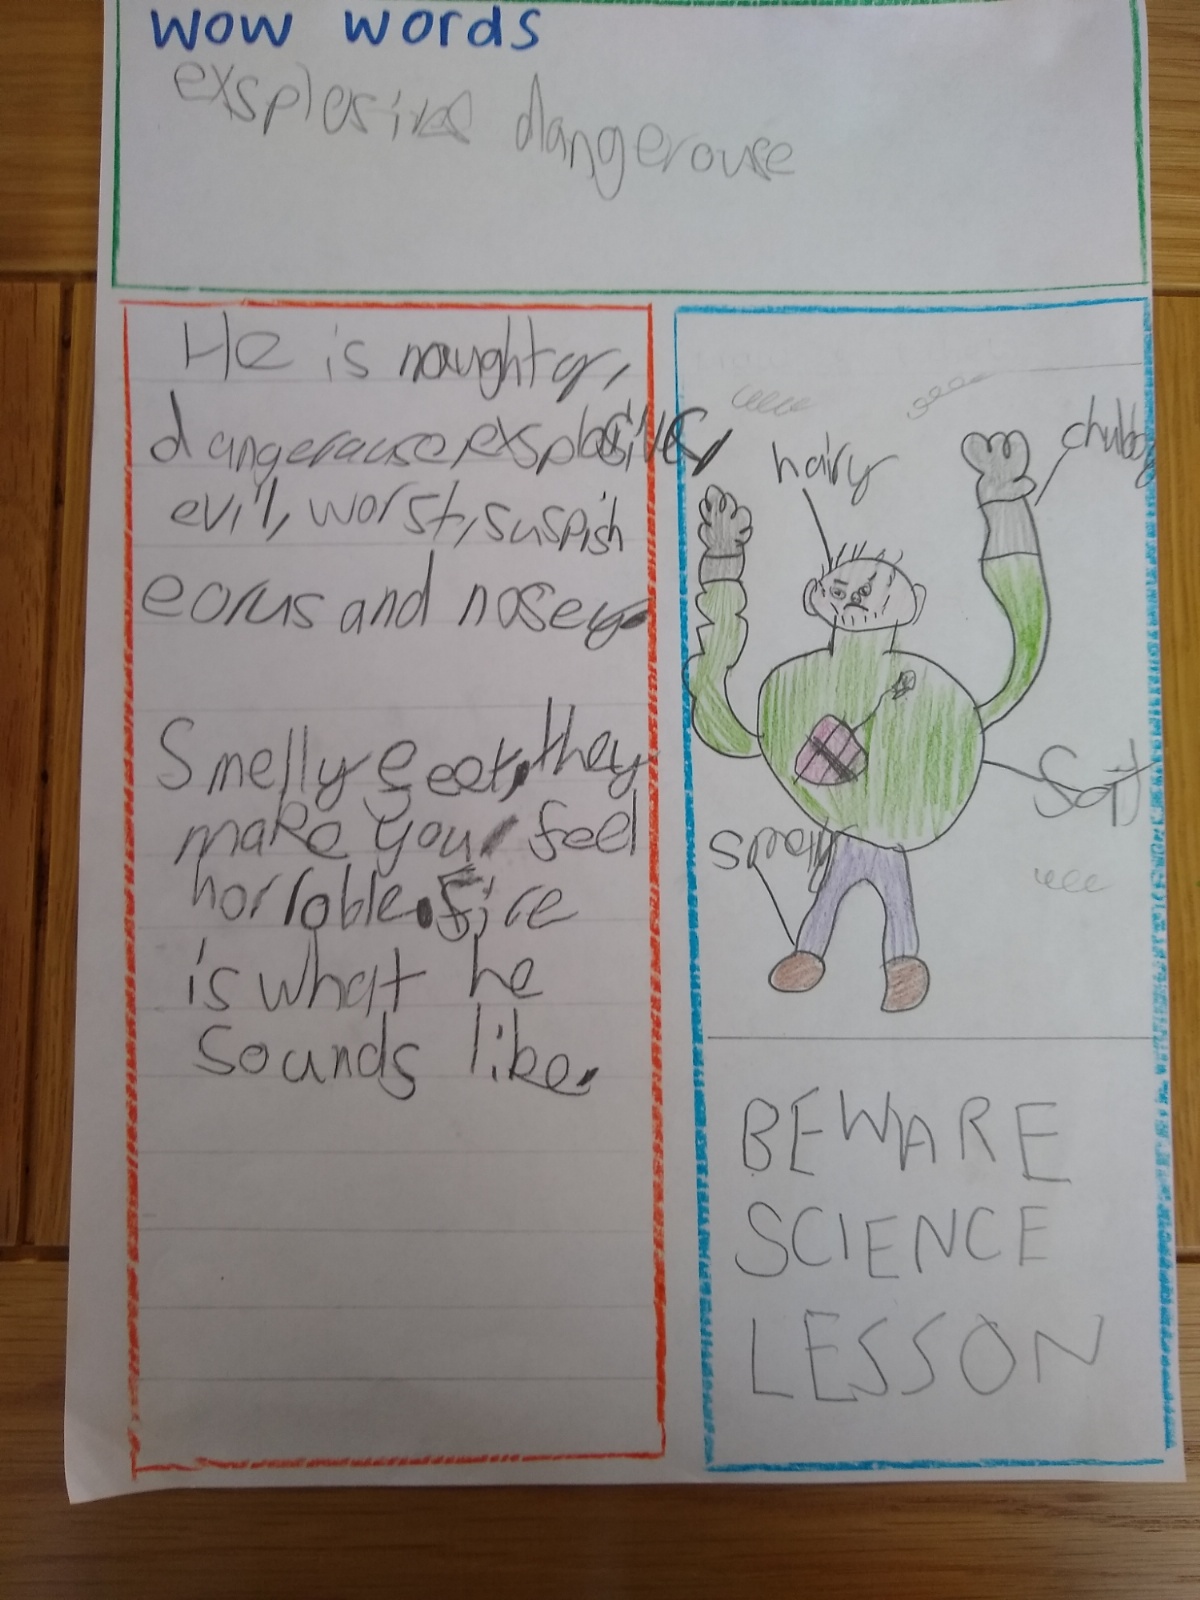 wow words
exsplosive dangerouse
He is naughty,
dangerause, exsplosive,
evil, worst, suspish
eorus and nosey
Smelly feet, they
make you feel
horroble. Fire
is what he
sounds like.
hairy
chubby
Soft
BEWARE
SCIENCE
LESSON